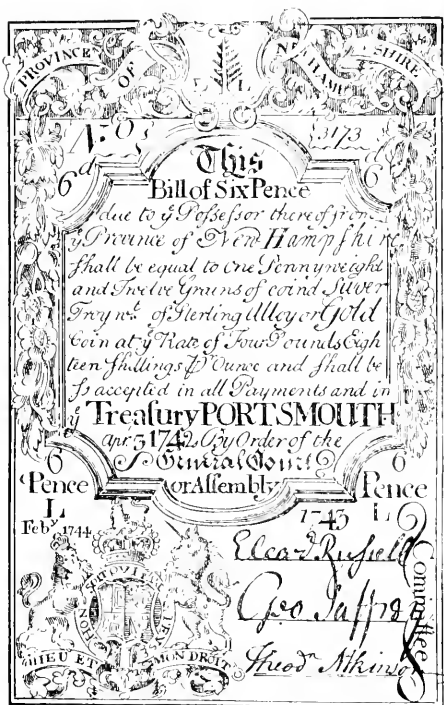 PROVINCE OF NEW HAMPSHIRE
D L
No. 3173
6d 6
This
Bill of Six Pence
due to ye Poſseſsor thereof from
ye Province of New Hampſhire
ſhall be equal to One Pennyweight
and Twelve Grains of coind Silver
Troy wt. of Sterling Alloy or Gold
Coin at ye Rate of Four Pounds Eigh
teen Shillings Pr Ounce and ſhall be
ſs accepted in all Payments and in
ye Treaſury PORTSMOUTH
Apr 3 1742 By Order of the
General Court
or Aſsembly
6 Pence 6 Pence
L L
Feby. 1744 1743
HONI SOIT QUI MAL
DIEU ET MON DROIT
Russell
Geo Jaffrey
Theodr. Atkinson
Committee